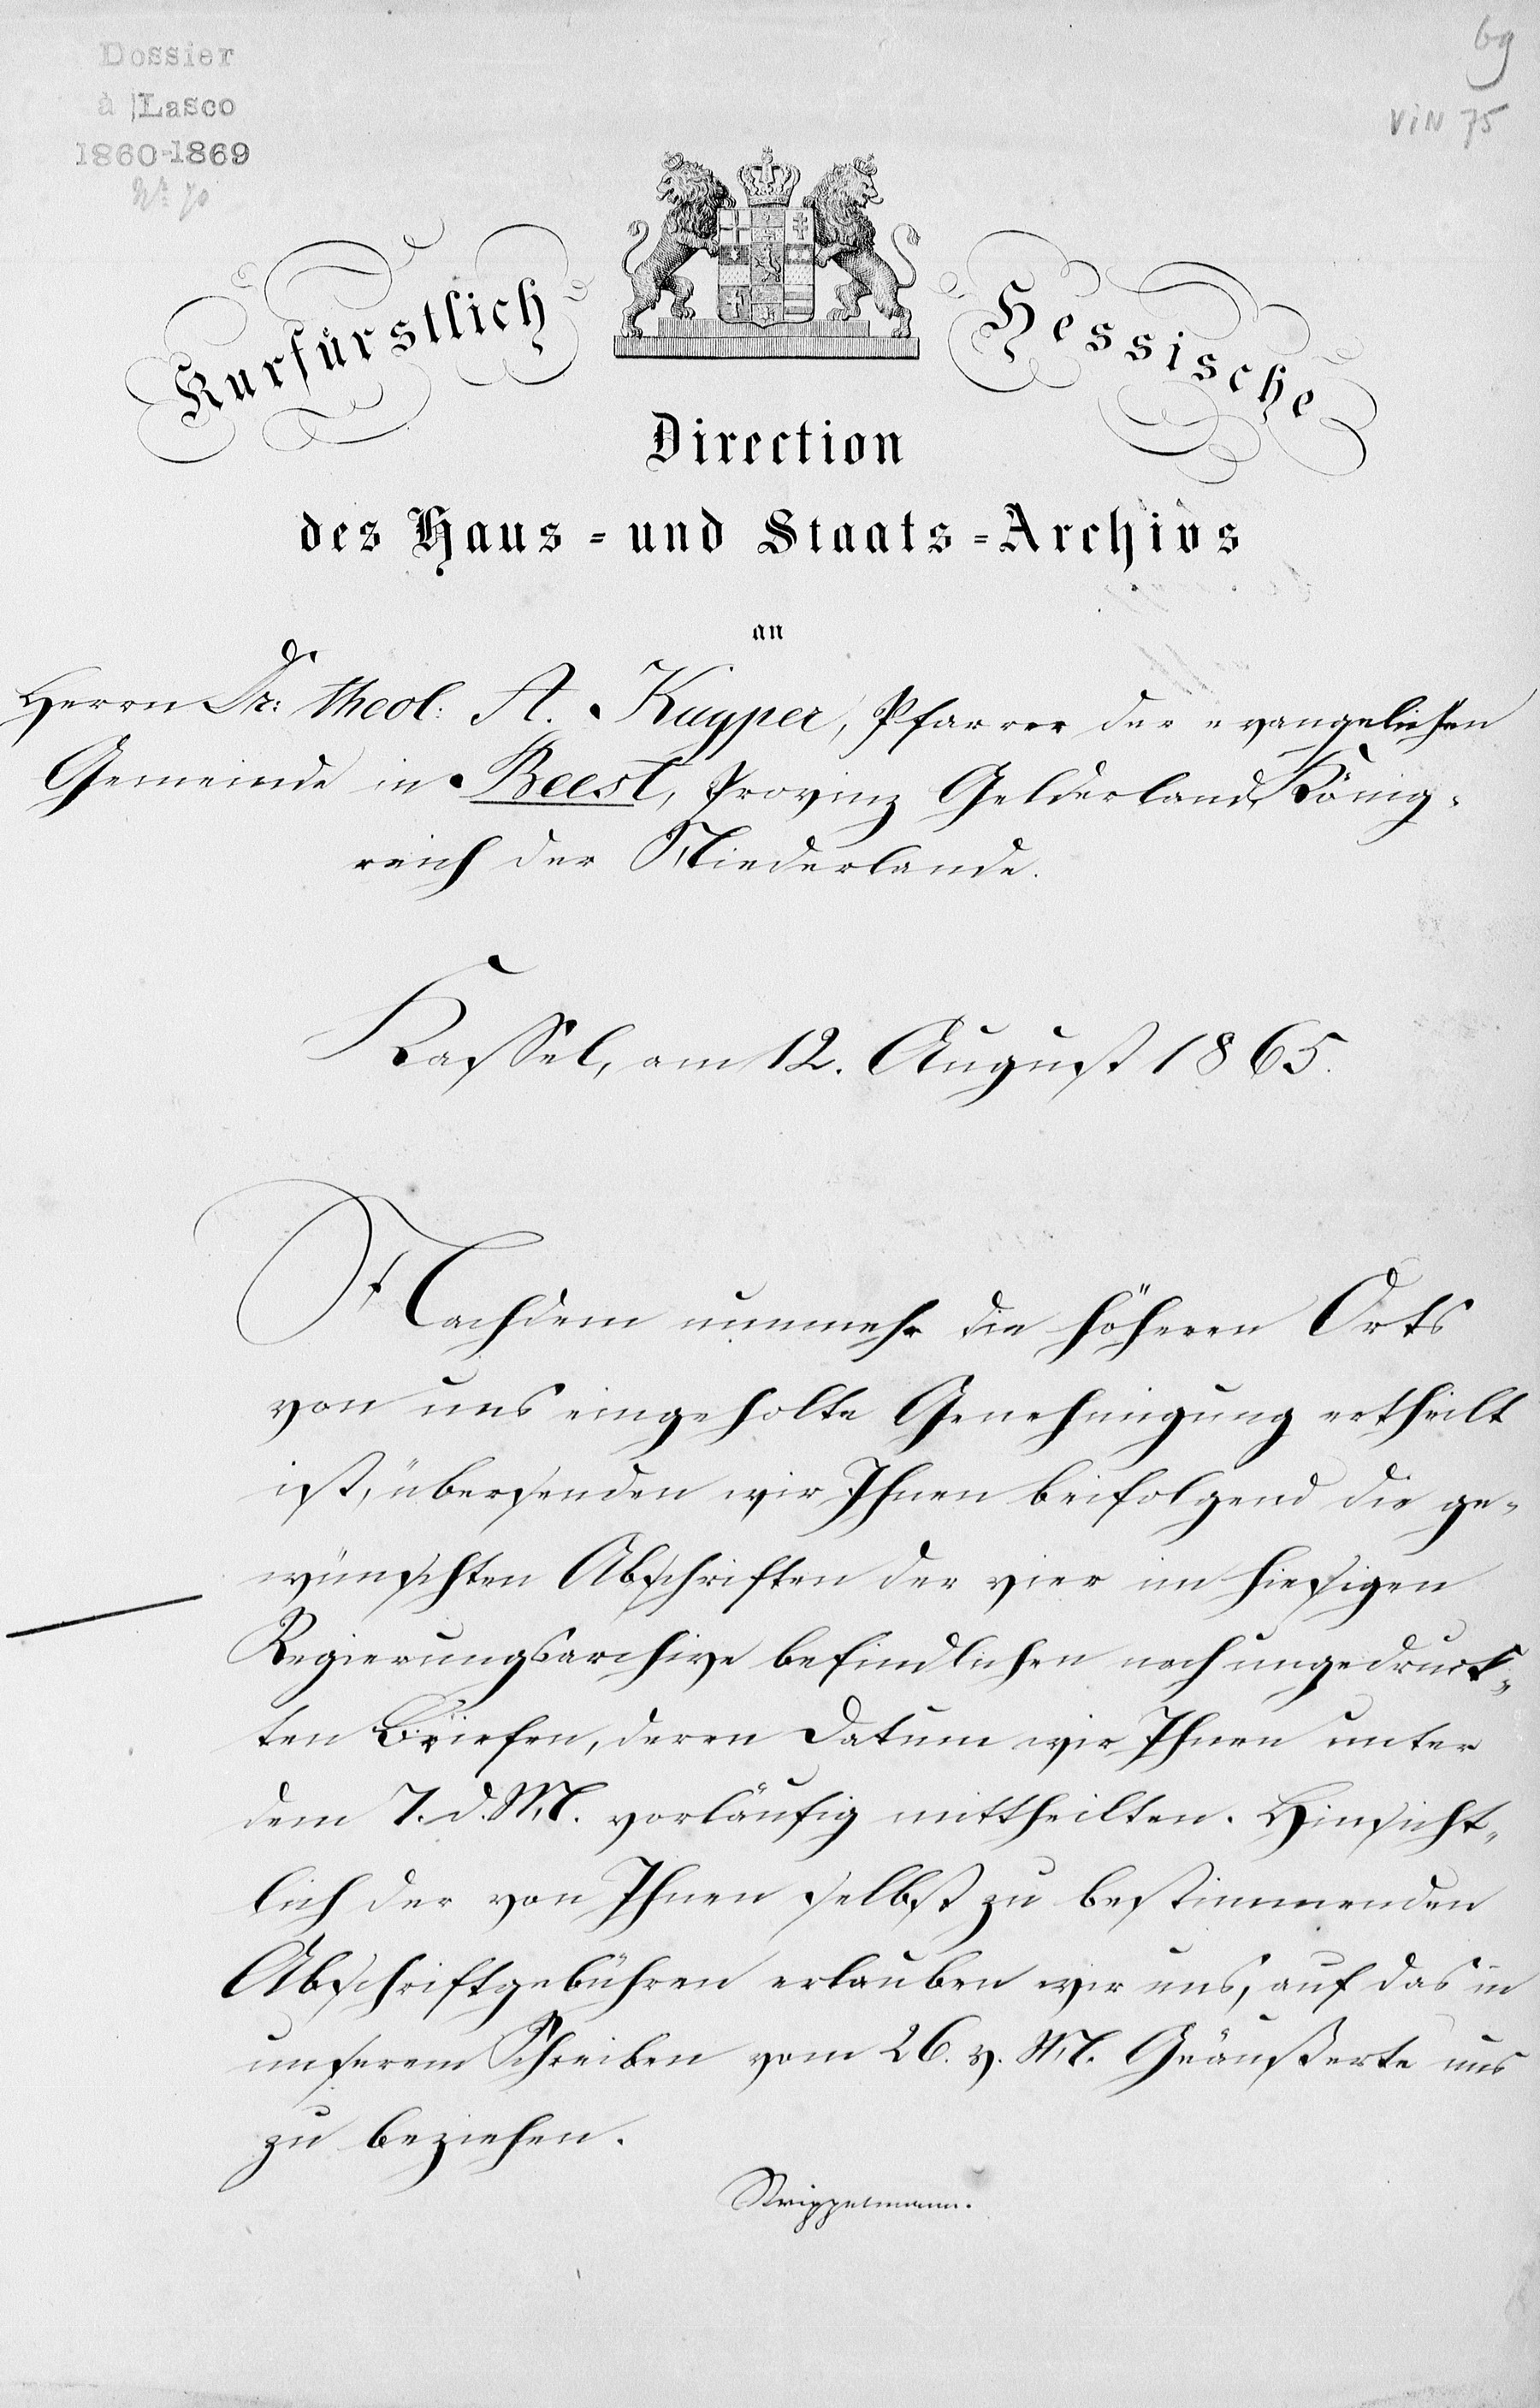 Dossier
à Lasco
1860-1869
N° 70
69
VIN 75
Kurfürstlich Hessische
Direction
des Haus- und Staats-Archivs
an
Herrn Dr: theol: A. Kuyper, Pfarrer der evangelischen
Gemeinde in Beest, Provinz Gelderland, König-
reich der Niederlande.
Kassel, am 12. August 1865.
Nachdem nunmehr die höheren Orts
von uns eingeholte Genehmigung ertheilt
ist, übersenden wir Ihnen beifolgend die ge-
wünschten Abschriften der vier im hiesigen
Regierungsarchive befindlichen noch ungedruck-
ten Briefen, deren Datum wir Ihnen unter
dem 7. d. M. vorläufig mittheilten. Hinsicht-
lich der von Ihnen selbst zu bestimmenden
Abschriftgebühren erlauben wir uns, auf das in
unserem Schreiben vom 26. v. M. Geäußerte uns
zu beziehen.
Strippelmann.